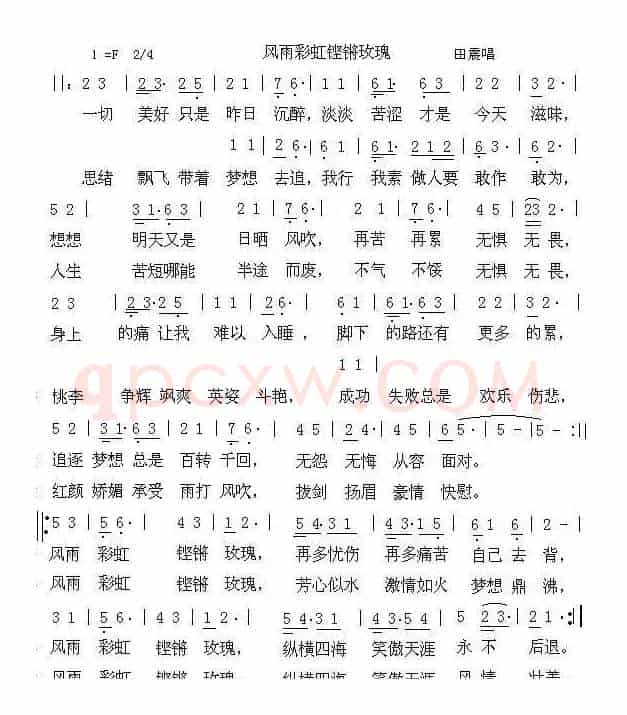 1=F 2/4 风雨彩虹铿锵玫瑰 田震唱
||: 2 3 | 2 3· 2 5 | 2 1 | 7 6· | 6 1 | 6 1· | 6 3 | 2 1 | 3 2· |
一切 美好 只是 昨日 沉醉,淡淡 苦涩 才是 今天 滋味,
1 1 | 2 6· | 6 1 | 6 1· 2 1 2 | 6 3 | 2 1 | 3 2· |
思绪 飘飞 带着 梦想 去追,我行 我素 做人要 敢作 敢为,
5 2 | 3 1·6 3 | 2 1 | 7 6· | 2 1 | 7 6· | 4 5 | 23 2· |
想想 明天又是 日晒 风吹, 再苦 再累 无惧 无畏,
人生 苦短哪能 半途 而废, 不气 不馁 无惧 无畏,
2 3 | 2 3·2 5 | 2 1 | 2 6· | 6 1 | 6 1·6 3 | 2 1 | 3 2· |
身上 的痛 让我 难以 入睡, 脚下 的路还有 更多 的累,
1 1 |
qpcxw.COM
桃李 争辉 飒爽 英姿 斗艳, 成功 失败总是 欢乐 伤悲,
5 2 | 3 1·6 3 | 2 1 | 7 6· | 4 5 | 2 4· | 4 5 | 6 5· | 5 - | 5 - :||
追逐 梦想 总是 百转 千回, 无怨 无悔 从容 面对。
红颜 娇媚 承受 雨打 风吹, 拔剑 扬眉 豪情 快慰。
||: 5 3 | 5 6· | 4 3 | 1 2· | 5 4·3 1 | 4 3·1 5 | 6 1 | 6· | 2 - |
风雨 彩虹 铿锵 玫瑰, 再多忧伤 再多痛苦 自己 去 背,
风雨 彩虹 铿锵 玫瑰, 芳心似水 激情如火 梦想 鼎 沸,
3 1 | 5 6· | 4 3 | 1 2· | 5 4·3 1 | 4 3·5 4 | 5 2 3· | 2 1· :||
风雨 彩虹 铿锵 玫瑰, 纵横四海 笑傲天涯 永不 后退。
风雨 彩虹 铿锵 玫瑰, 纵横四海 笑傲天涯 风情 壮美。